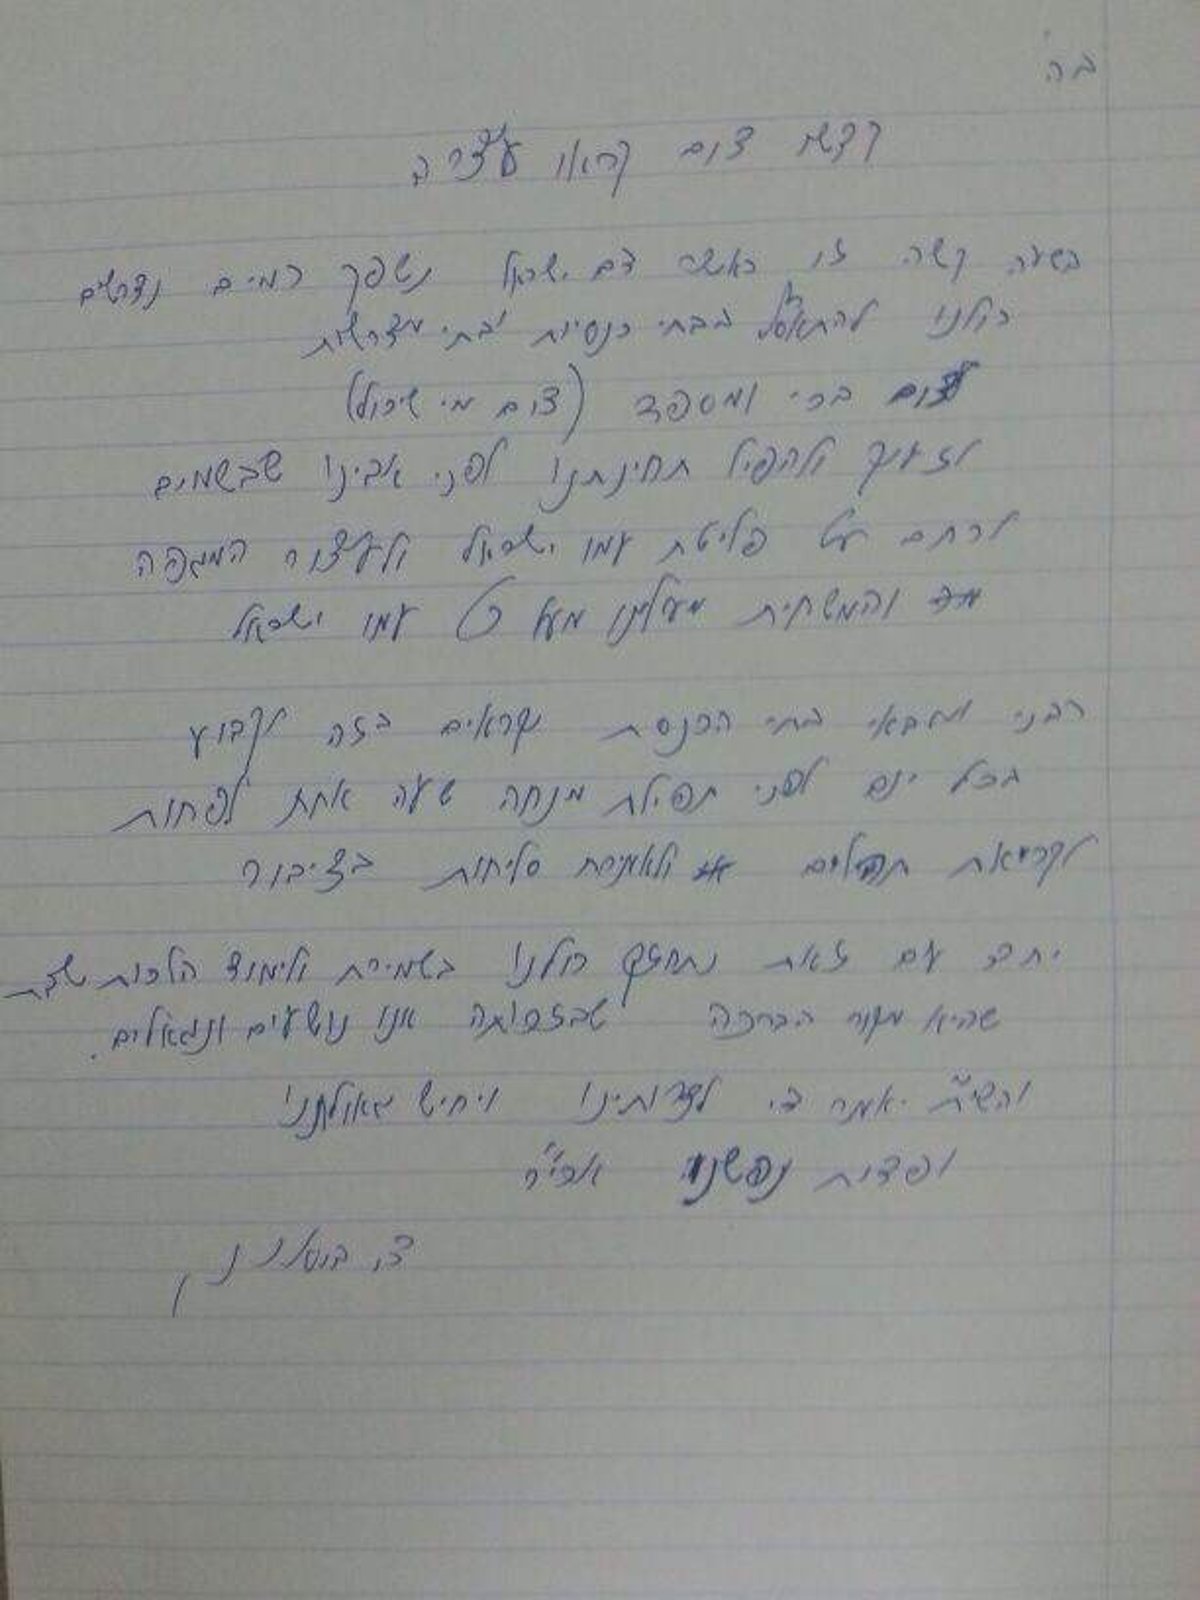 בה'
קדשו צום קראו עצרה
בשעה קשה זו כאשר דם ישראל נשפך כמים נדרשים
כולנו להתאסף בבתי כנסיות ובתי מדרשות
בצום בכי ומספד (צום מי שיכול)
לזעוק ולהפיל תחינתנו לפני אבינו שבשמים
לרחם על פליטת עמו ישראל ולעצור המגפה
והמשחית מעלינו מעל כל עמו ישראל
רבני וגבאי בתי הכנסת נקראים בזה לקבוע
בכל יום לפני תפילת מנחה שעה אחת לפחות
לקריאת תהילים ולאמירת סליחות בציבור
יחד עם זאת נתחזק כולנו בשמירת ולימוד הלכות שבת
שהיא מקור הברכה שבזכותה אנו נושעים ונגאלים.
והשי"ת יאמר די לצרותינו ויחיש גאולתנו
ופדות נפשנו אכי"ר